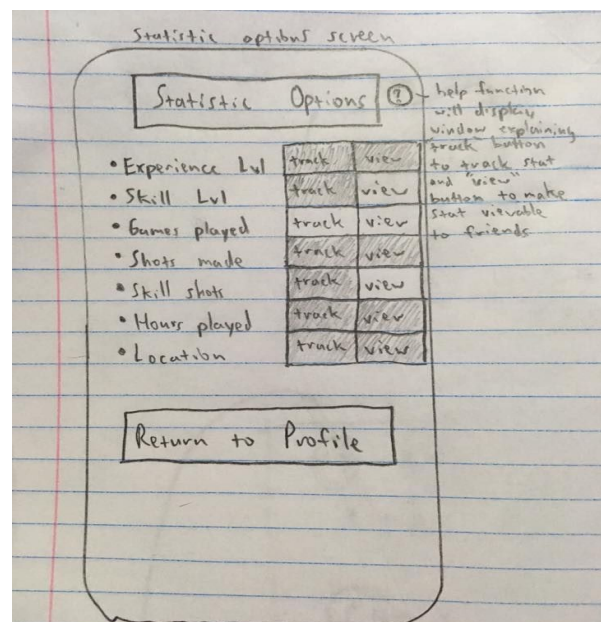 Statistic options screen
Statistic Options ?
help function
will display
window explaining
track button
to track stat
and "view"
button to make
stat viewable
to friends
• Experience Lvl track view
• Skill Lvl track view
• Games played track view
• Shots made track view
• Skill shots track view
• Hours played track view
• Location track view
Return to Profile